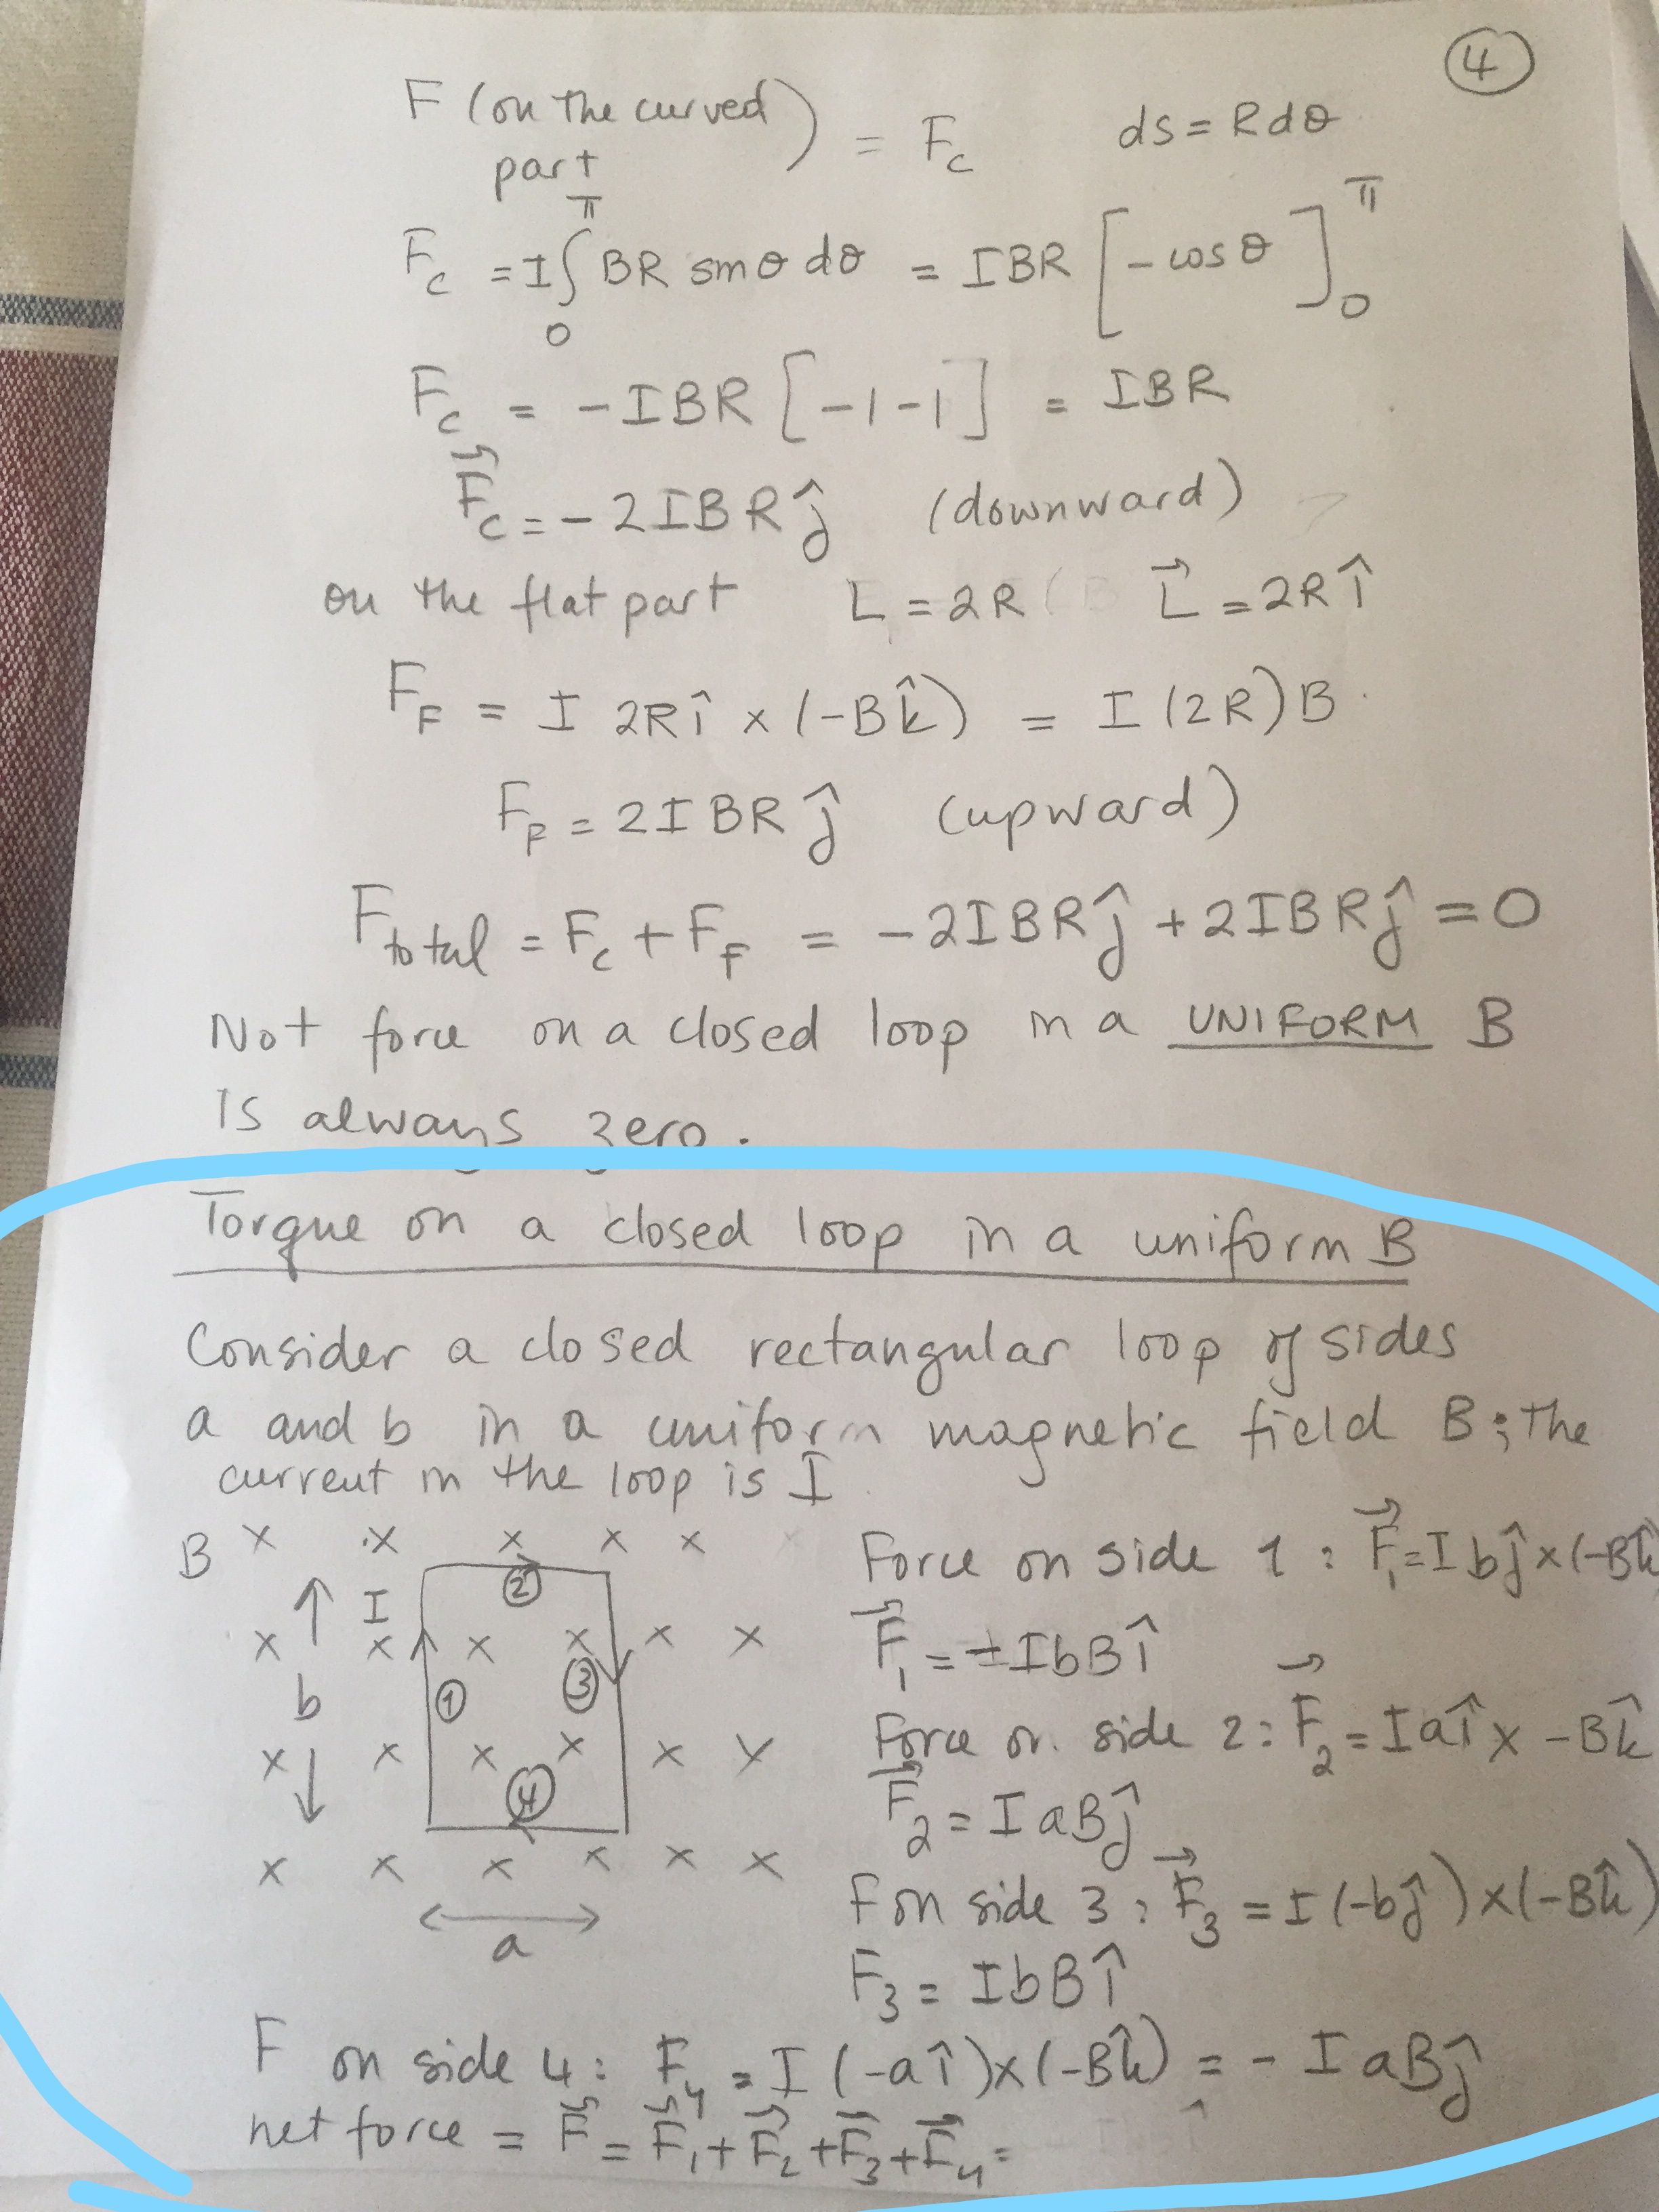 ④
F (on the curved part) = F_c ds = Rdθ
F_c = I∫₀^π BR sinθ dθ = IBR [-cosθ]₀^π
F_c = -IBR [-1-1] = IBR
F⃗_c = -2IBR ĵ (downward)
on the flat part L = 2R L⃗ = 2R î
F_F = I 2R î × (-B k̂) = I(2R)B
F_F = 2IBR ĵ (upward)
F_total = F_c + F_F = -2IBR ĵ + 2IBR ĵ = 0
Not force on a closed loop in a UNIFORM B
is always zero.
Torque on a closed loop in a uniform B
Consider a closed rectangular loop of sides
a and b in a uniform magnetic field B; the
current in the loop is I
B I b ① ② ③ ④ a
Force on side 1: F⃗₁ = I b ĵ × (-B k̂
F⃗₁ = IbB î
Force on side 2: F⃗₂ = I a î × -B k̂
F⃗₂ = I a B ĵ
F on side 3: F⃗₃ = I (-b ĵ) × (-B k̂)
F₃ = IbB î
F on side 4: F₄ = I (-a î) × (-B k̂) = - I a B ĵ
net force = F⃗ = F⃗₁ + F⃗₂ + F⃗₃ + F⃗₄ =